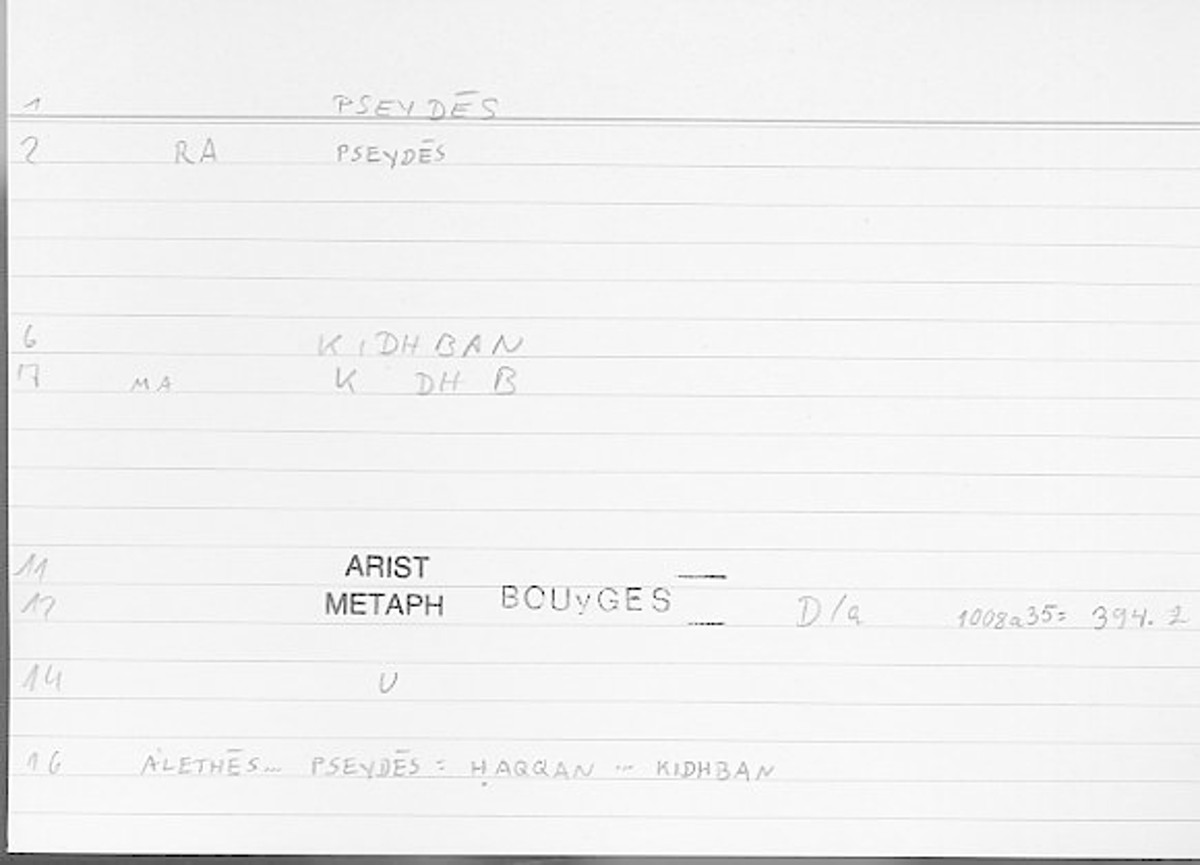 1 PSEYDĒS
2 RA PSEYDĒS
6 KIDHBAN
17 MA K DH B
11 ARIST
12 METAPH BOUYGES D/a 1008a35= 394.2
14 U
16 ALETHĒS... PSEYDĒS = ḤAQQAN ... KIDHBAN